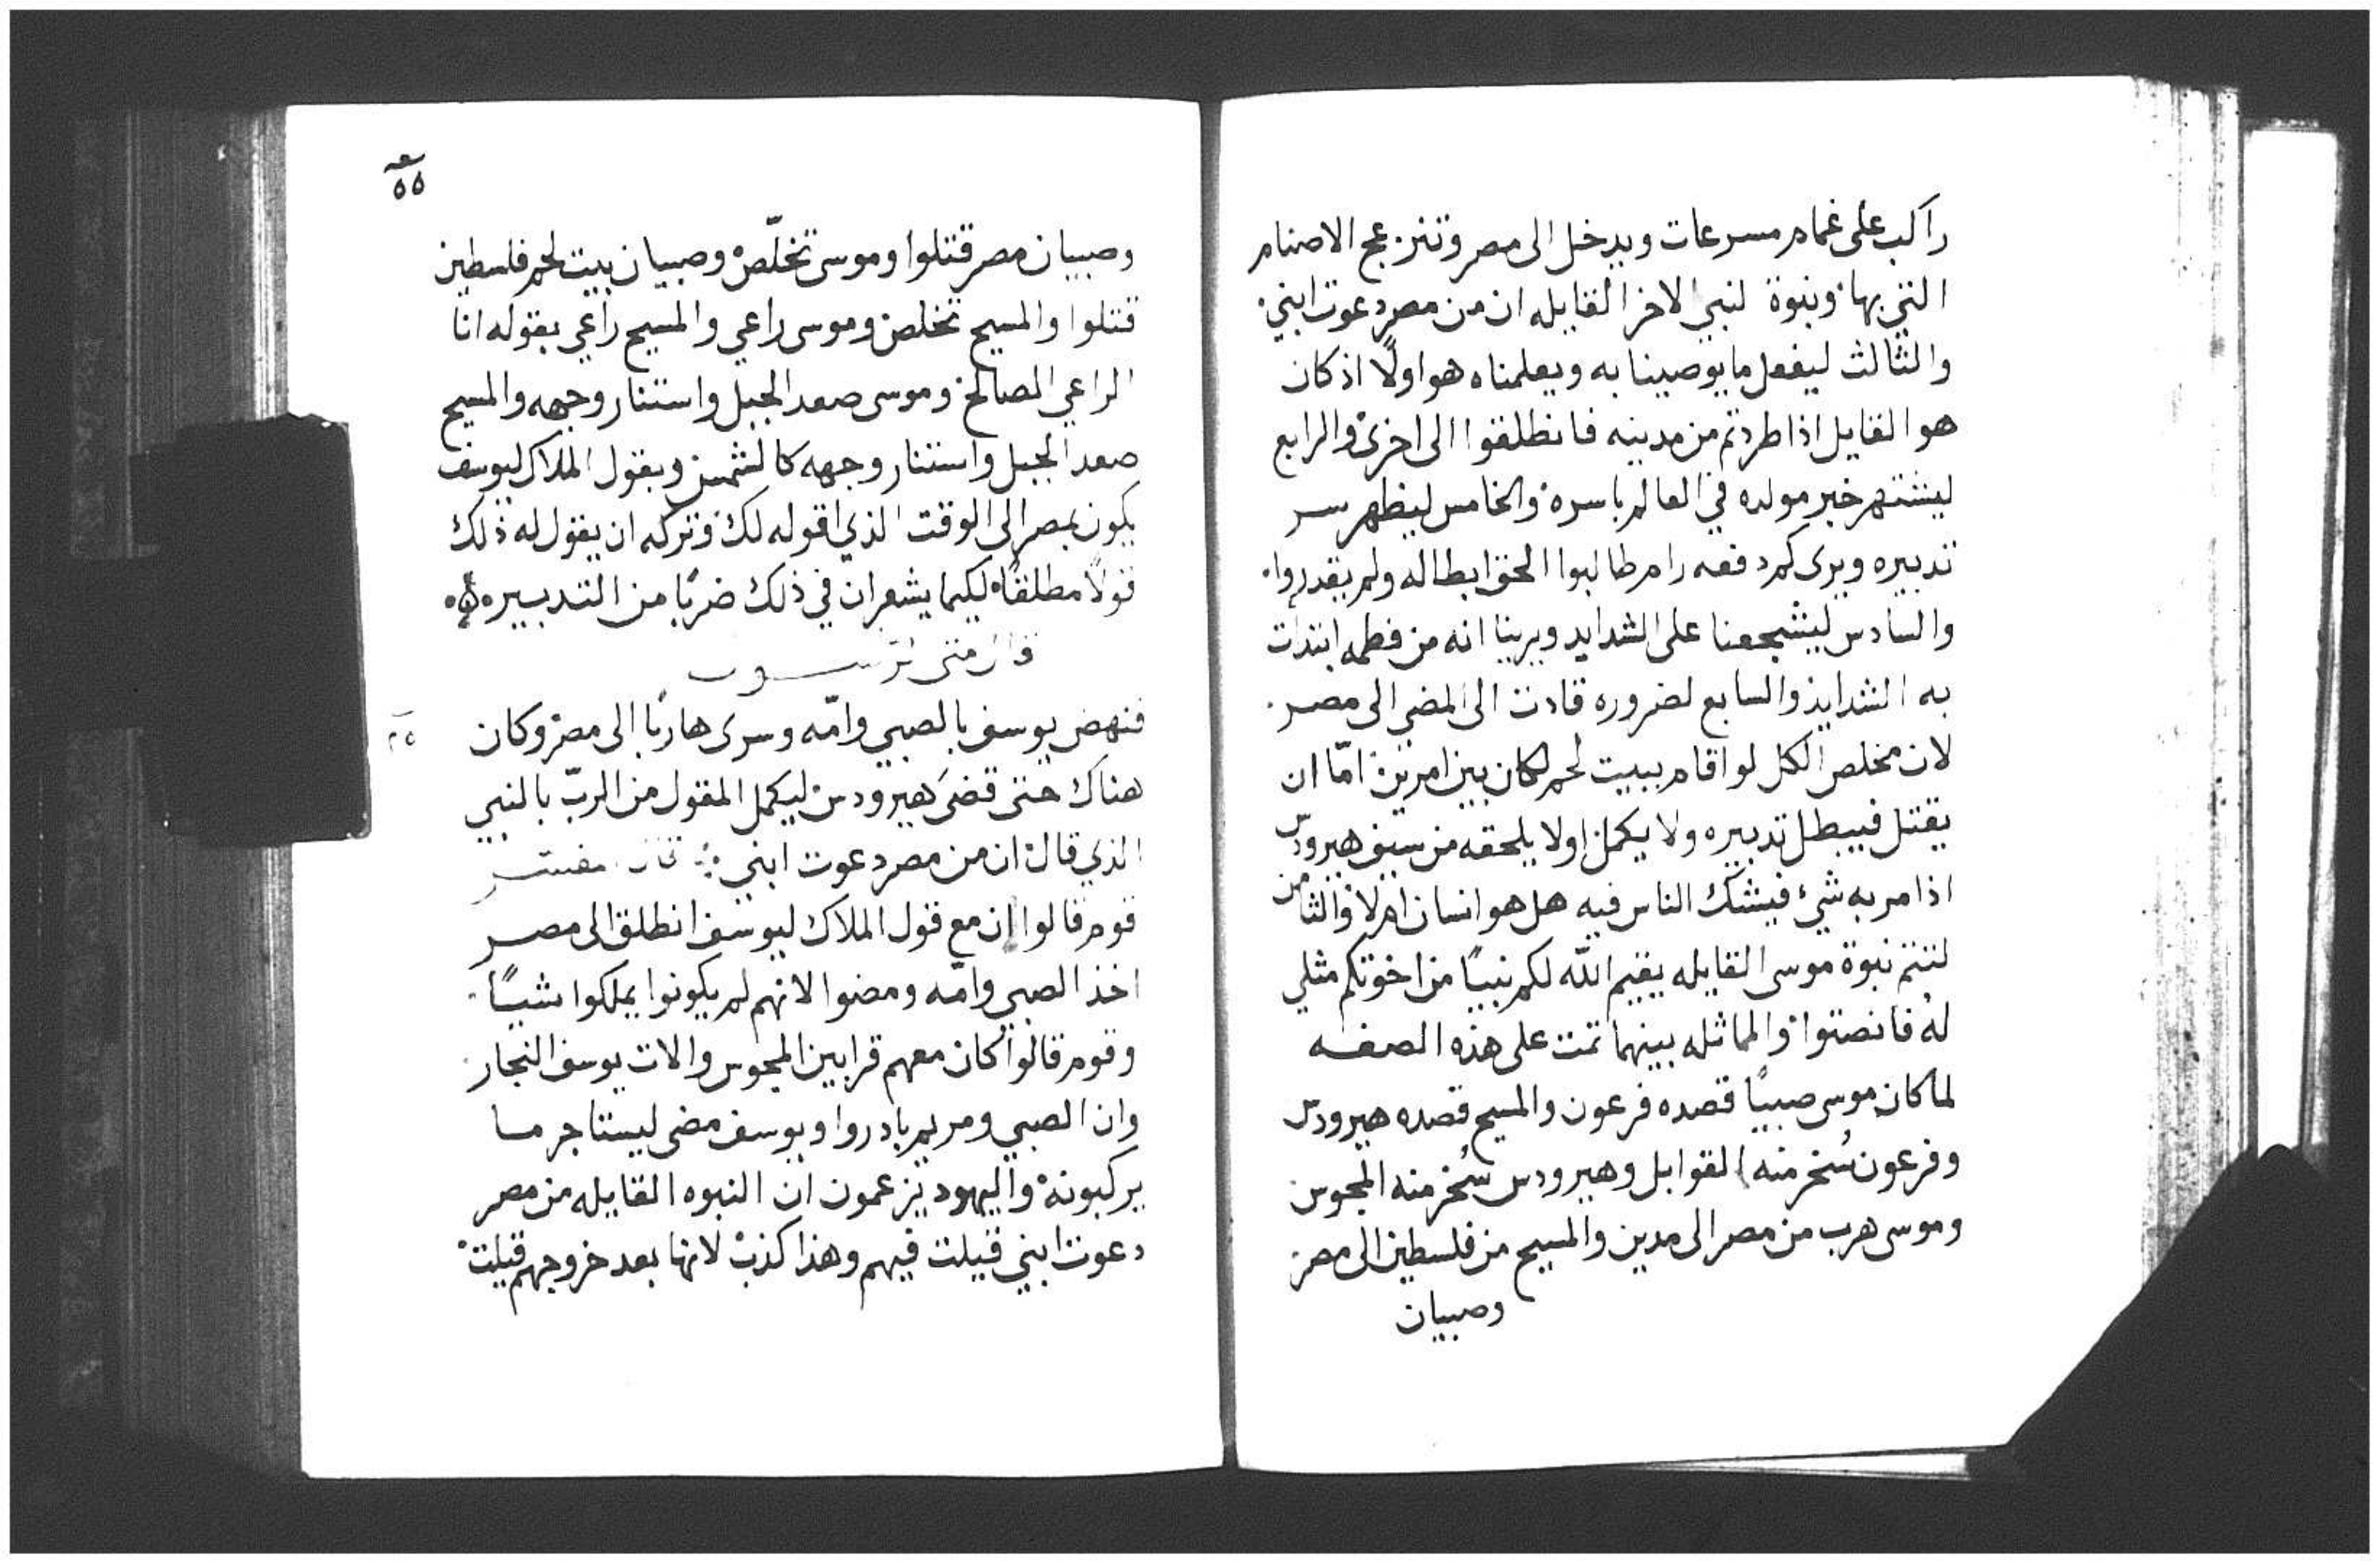 راكب على غمام مسرعات ويدخل الى مصر وتنزعج الاصنام
التي بها ونبوة لنبي الاخر القايله ان من مصر دعوت ابني
والثالث ليفعل ما يوصينا به ويعلمناه هو اولًا اذ كان
هو القايل اذا طردتم من مدينه فانطلقوا الى اخرى والرابع
ليشتهر خبر مولده في العالم باسره والخامس ليظهر سر
تدبيره ويرى كم دفعه رام طالبوا الحق ابطاله ولم يقدروا
والسادس ليشجعنا على الشدايد ويرينا انه من فطمه ابتدات
به الشدايد والسابع لضروره قادت الى المضي الى مصر
لان مخلص الكل لو اقام ببيت لحم لكان بين امرين امّا ان
يقتل فيبطل تدبيره ولا يكمل او لا يلحقه من سيف هيرودس
اذا مر به شيء فيشك الناس فيه هل هو انسان ام لا والثامن
لتتم نبوة موسى القايله يقيم الله لكم نبيًا من اخوتكم مثلي
له فانصتوا والماثله بينهما تمت على هذه الصفه
لما كان موسى صبيًا قصده فرعون والمسيح قصده هيرودس
وفرعون سُخر منه القوابل وهيرودس سُخر منه المجوس
وموسى هرب من مصر الى مدين والمسيح من فلسطين الى مصر
وصبيان
٥٥
وصبيان مصر قتلوا وموسى تخلّص وصبيان بيت لحم فلسطين
قتلوا والمسيح تخلص وموسى راعي والمسيح راعي بقوله انا
الراعي الصالح وموسى صعد الجبل واستنار وجهه والمسيح
صعد الجبل واستنار وجهه كالشمس ويقول الملاك ليوسف
يكون بمصر الى الوقت الذي اقوله لك وتركه ان يقول له ذلك
قولًا مطلقًا لكيما يشعر ان في ذلك ضربًا من التدبيره
قال متى الرسول
فنهض يوسف بالصبي وامّه وسرى هاربًا الى مصر وكان
هناك حتى قضى هيرودس ليكمل المقول من الربّ بالنبي
الذي قال ان من مصر دعوت ابني قال المفسر
قوم قالوا ان مع قول الملاك ليوسف انطلق الى مصر
اخذ الصبي وامّه ومضوا لانهم لم يكونوا يملكوا شيًا
وقوم قالوا كان معهم قرابين المجوس والات يوسف النجار
وان الصبي ومريم بادروا ويوسف مضى ليستاجر ما
يركبونه واليهود يزعمون ان النبوه القايله من مصر
دعوت ابني قيلت فيهم وهذا كذب لانها بعد خروجهم قيلت